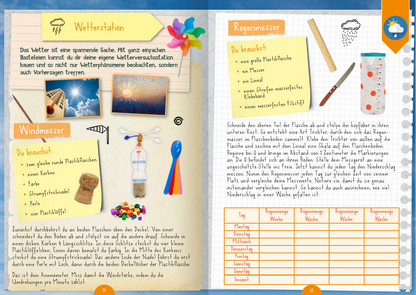 Wetterstation
Das Wetter ist eine spannende Sache. Mit ganz einfachen
Basteleien kannst du dir deine eigene Wetterversuchsstation
bauen und so nicht nur Wetterphänomene beobachten, sondern
auch Vorhersagen treffen.
Windmesser
Du brauchst:
• zwei gleiche runde Plastikflaschen
• einen Korken
• Farbe
• Strumpfstricknadel
• Perle
• vier Plastiklöffel
Zunächst durchbohrst du an beiden Flaschen oben den Deckel. Von einer
schneidest du den Boden ab und stülpst sie auf die andere drauf. Schneide in
einen dicken Korken 4 Längsschlitze. In diese Schlitze steckst du vier kleine
Plastiklöffelchen. Einen davon bemalst du farbig. In die Mitte des Korkens
steckst du eine Strumpfstricknadel. Das andere Ende der Nadel führst du erst
durch eine Perle mit Loch, dann durch die beiden Deckellöcher der Plastikflasche.
Das ist dein Anemometer. Miss damit die Windstärke, indem du die
Umdrehungen pro Minute zählst.
Regenmesser
Du brauchst:
• eine große Plastikflasche
• ein Messer
• ein Lineal
• einen Streifen wasserfestes
Klebeband
• einen wasserfesten Filzstift
Schneide den oberen Teil der Flasche ab und stülpe den kopfüber in ihren
unteren Rest. So entsteht eine Art Trichter, durch den sich das Regen-
wasser im Flaschenboden sammelt. Klebe den Streifen von außen auf die
Flasche und zeichne mit dem Lineal eine Skala auf den Flaschenboden.
Beginne bei 0 und bringe im Abstand von 1 Zentimeter die Markierungen
an. Die 0 befindet sich an ihrem Boden. Stelle dein Messgerät an eine
ungeschützte Stelle ins Freie. Jetzt kannst du jeden Tag den Niederschlag
messen. Nimm den Regenmesser jeden Tag zur gleichen Zeit von seinem
Platz und vergleiche deine Messwerte. Notiere sie, damit du sie genau
miteinander vergleichen kannst. So kannst du auch ausrechnen, wie viel
Niederschlag in einer Woche gefallen ist.
Tag Regenmenge Woche Regenmenge Woche Regenmenge Woche Regenmenge Woche
Montag
Dienstag
Mittwoch
Donnerstag
Freitag
Samstag
Sonntag
Gesamt